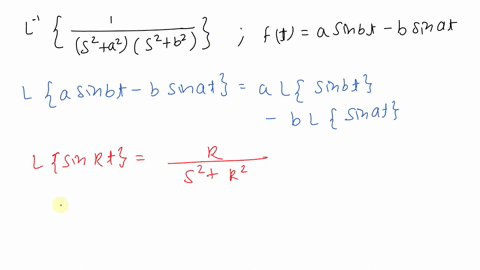 L⁻¹ { 1 / (s²+a²)(s²+b²) } ; f(t) = a sin bt − b sin at
L { a sin bt − b sin at } = a L { sin bt }
− b L { sin at }
L { sin R t } = R / s² + R²